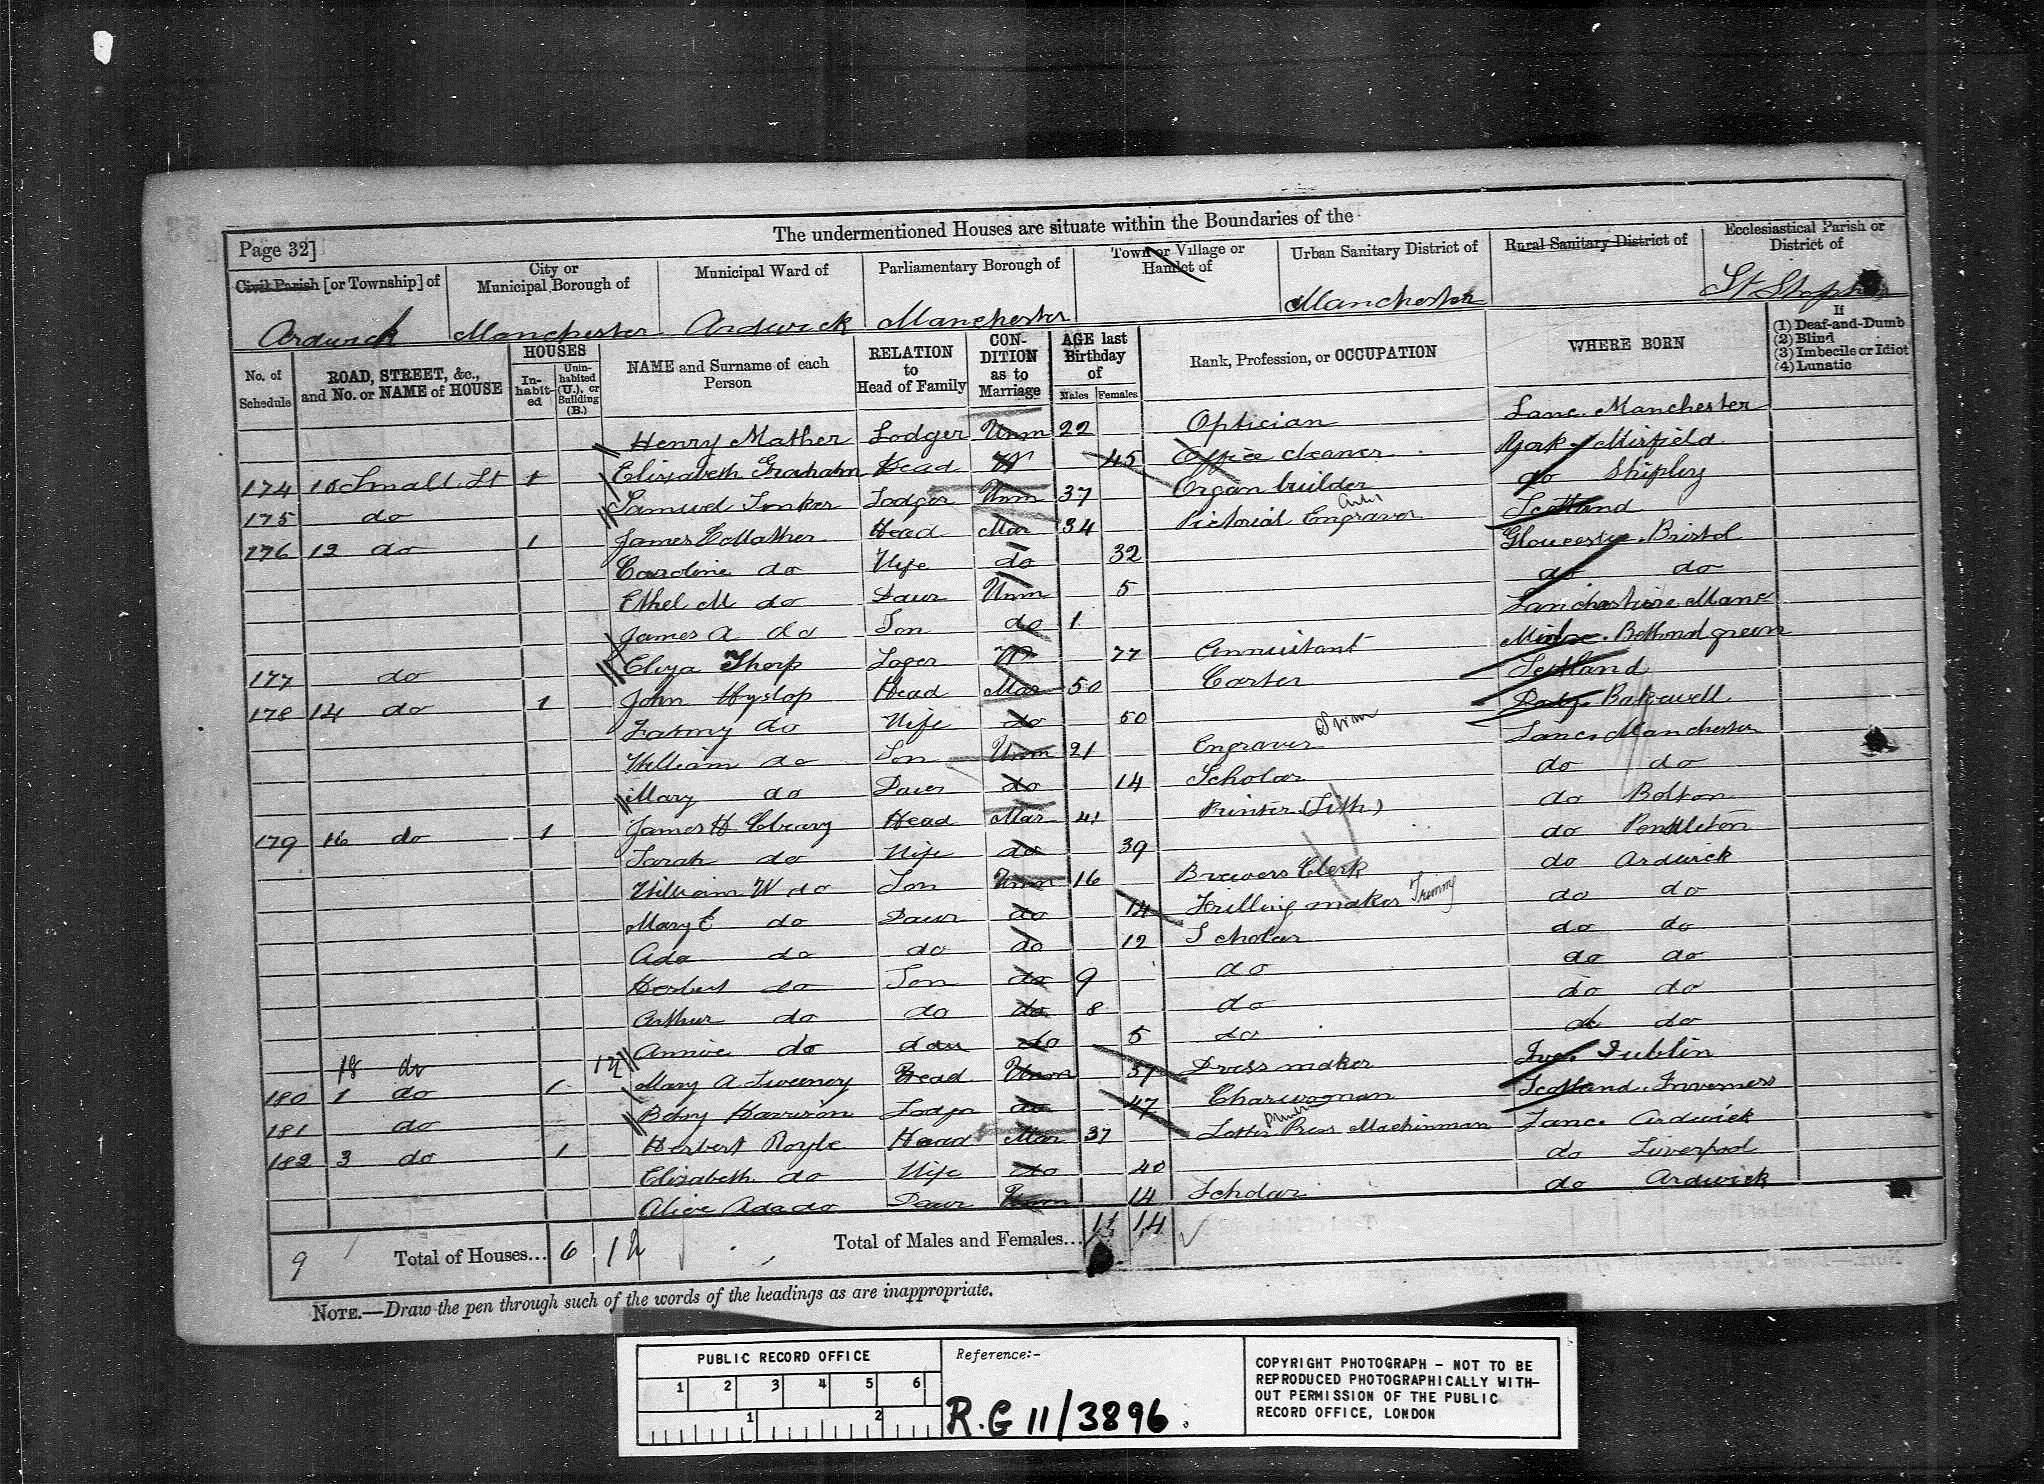 The undermentioned Houses are situate within the Boundaries of the
Page 32]
Civil Parish [or Township] of
City or Municipal Borough of
Municipal Ward of
Parliamentary Borough of
Town or Village or Hamlet of
Urban Sanitary District of
Rural Sanitary District of
Ecclesiastical Parish or District of
Ardwick Manchester Ardwick Manchester Manchester St Stephen
No. of Schedule
ROAD, STREET, &c., and No. or NAME of HOUSE
HOUSES
In-habit-ed
Unin-habited (U.), or Building (B.)
NAME and Surname of each Person
RELATION to Head of Family
CON-DITION as to Marriage
AGE last Birthday of
Males Females
Rank, Profession, or OCCUPATION
WHERE BORN
If
(1) Deaf-and-Dumb
(2) Blind
(3) Imbecile or Idiot
(4) Lunatic
Henry Mather Lodger Unm 22 Optician Lanc. Manchester
174 10 Small St 1 Elizabeth Graham Head W 45 Office cleaner York Mirfield
175 do Samuel Tonker Lodger Unm 37 Organ builder do Shipley
176 12 do 1 James Mather Head Mar 34 Pictorial Engraver Scotland
Caroline do Wife do 32 Gloucester Bristol
Ethel M do Daur Unm 5 do do
James A do Son do 1 Lancashire Manc
177 do Eliza Thorp Loger W 77 Annuitant Midsx. Bethnal green
178 14 do 1 John Hyslop Head Mar 50 Carter Scotland
Fanny do Wife do 50 Derby. Bakewell
William do Son Unm 21 Engraver Lanc Manchester
Mary do Daur do 14 Scholar do do
179 16 do 1 James H Cleary Head Mar 41 Printer (Lith) do Bolton
Sarah do Wife do 39 do Pendleton
William W do Son Unm 16 Brewers Clerk do Ardwick
Mary E do Daur do 14 Frilling maker Trimmg do do
Ada do do do 12 Scholar do do
Herbert do Son do 9 do do do
Arthur do do do 8 do do do
Annie do dau do 5 do do do
18 do
180 1 do 1 Mary A Sweeney Head Unm 37 Dress maker Ire. Dublin
181 do Betsy Harrison Lodger do 47 Charwoman Scotland. Inverness
182 3 do 1 Herbert Royle Head Mar 37 Letter Press Machinman Lanc Ardwick
Elizabeth do Wife do 40 do Liverpool
Alice Ada do Daur Unm 14 Scholar do Ardwick
9 Total of Houses... 6 12 Total of Males and Females... 11 14
NOTE.—Draw the pen through such of the words of the headings as are inappropriate.
PUBLIC RECORD OFFICE
1 2 3 4 5 6
1 2
Reference:-
R.G 11/3896
COPYRIGHT PHOTOGRAPH - NOT TO BE
REPRODUCED PHOTOGRAPHICALLY WITH-
OUT PERMISSION OF THE PUBLIC
RECORD OFFICE, LONDON